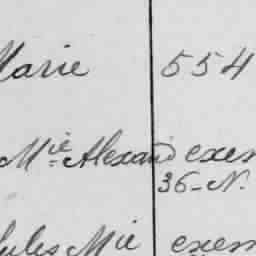 Marie 554
Mie Alexand exem
36-N.
Jules Mie exem